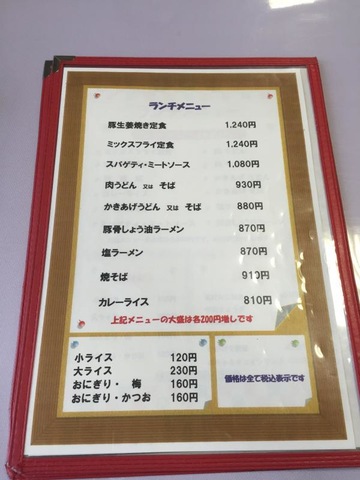 ランチメニュー
豚生姜焼き定食 1.240円
ミックスフライ定食 1.240円
スパゲティ・ミートソース 1,080円
肉うどん 又は そば 930円
かきあげうどん 又は そば 880円
豚骨しょう油ラーメン 870円
塩ラーメン 870円
焼そば 910円
カレーライス 810円
上記メニューの大盛は各200円増しです
小ライス 120円
大ライス 230円
おにぎり・ 梅 160円
おにぎり・かつお 160円
価格は全て税込表示です